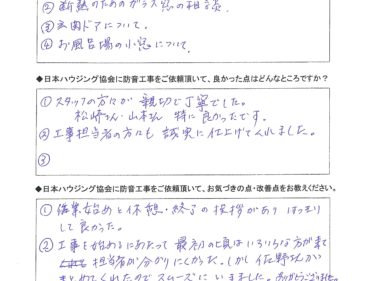 ② 断熱のためのガラス窓の相談.
③ 玄関ドアについて.
④ お風呂場の小窓について.
◆日本ハウジング協会に防音工事をご依頼頂いて、良かった点はどんなところですか？
① スタッフの方々が 親切で丁寧でした。
松崎さん・山本さん 特に良かったです。
② 工事担当者の方々も 誠実に仕上げてくれました。
③
◆日本ハウジング協会に防音工事をご依頼頂いて、お気づきの点・改善点をお教えください。
① 作業始めと休憩・終了の挨拶があり はっきり
して良かった。
② 工事を始めるにあたって 最初の頃はいろいろな方が来て
担当者が分かりにくかった。しかし佐野さんが
まとめてくれたのでスムーズにいきました。ありがとうございました。